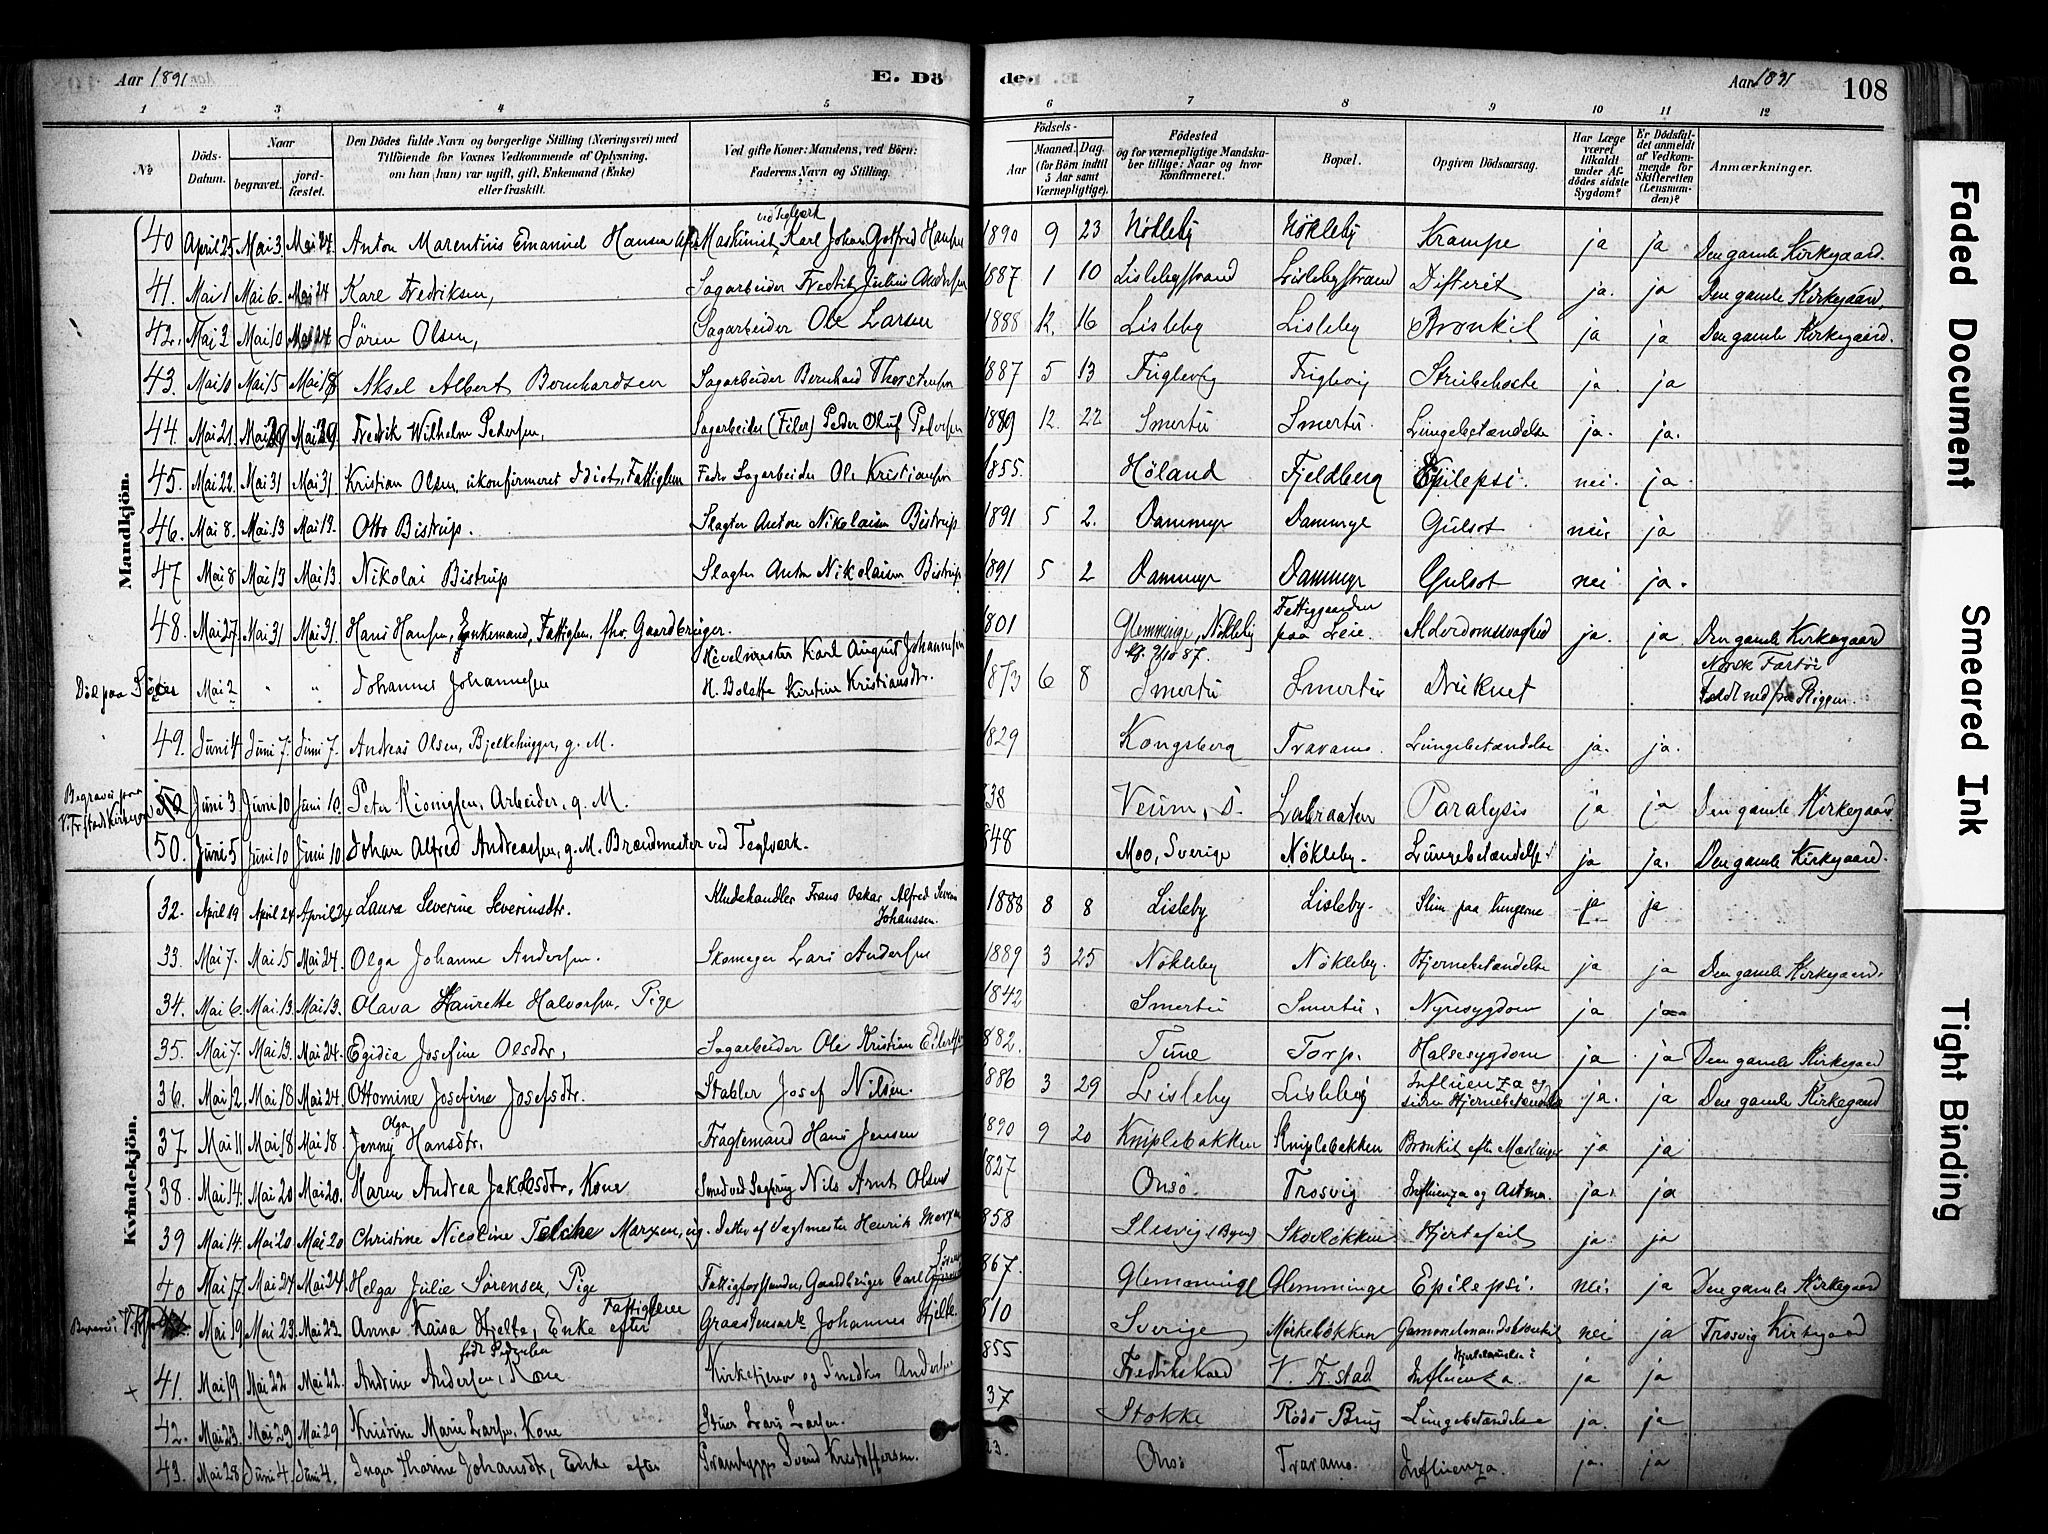 Aar 1891
E. Dö
de.
Aar 1891
108
1 2 3 4 5 6 7 8 9 10 11 12
No
Döds-Datum.
Naar
begravet.
jord-fæstet.
Den Dödes fulde Navn og borgerlige Stilling (Næringsvei) med
Tilföiende for Voxnes Vedkommende af Oplysning,
om han (hun) var ugift, gift, Enkemand (Enke)
eller fraskilt.
Ved gifte Koner: Mandens, ved Börn:
Faderens Navn og Stilling.
Födsels-
Aar
Maaned. Dag.
(for Börn indtil
5 Aar samt
Værnepligtige).
Födested
og for værnepligtige Mandska-
ber tillige: Naar og hvor
konfirmeret.
Bopæl.
Opgiven Dödsaarsag.
Har Læge
været
tilkaldt
under Af-
dödes sidste
Sygdom?
Er Dödsfal-
det anmeldt
af Vedkom-
mende for
Skifteretten
(Lensman-
den)?
Anmærkninger.
Mandkjön.
40 April 25 Mai 3. Mai 24. Anton Marentius Emanuel Hansen Maskinist ved Teglværk Karl Johan Gotfred Hansen 1890 9 23 Nökleby Nökleby Krampe ja ja Den gamle Kirkegaard.
41. Mai 1 Mai 6. Mai 24 Karl Fredriksen, Sagarbeider Fredrik Julius Andersen 1887 1 10 Lislebystrand Lislebystrand Difterit ja. ja Den gamle Kirkegaard.
42. Mai 2 Mai 10 Mai 24 Sören Olsen, Sagarbeider Ole Larsen 1888 12. 16 Lisleby Lisleby Bronkit ja ja Den gamle Kirkegaard.
43. Mai 10 Mai 15 Mai 18 Aksel Albert Bernhardsen Sagarbeider Bernhard Thorstensen 1887 5 13 Fuglevig Fuglevig Strubehoste ja. ja
44. Mai 21. Mai 29 Mai 29 Fredrik Wilhelm Pedersen, Sagarbeider (Filer) Peder Oluf Pedersen 1889 12. 22 Smertu Smertu. Lungebetændelse ja. ja.
45. Mai 22. Mai 31 Mai 31 Kristian Olsen, ukonfirmeret Idiot, Fattiglem Fader Sagarbeider Ole Kristiansen 1855. Höland Fjeldberg Epilepsi. nei. ja.
46. Mai 8. Mai 13 Mai 13. Otto Bistrup. Slagter Anton Nikolaisen Bistrup. 1891 5 2. Dammyr Dammyr Gulsot nei ja
47 Mai 8 Mai 13 Mai 13. Nikolai Bistrup Slagter Anton Nikolaisen Bistrup. 1891 5 2 Dammyr Dammyr Gulsot nei ja.
48. Mai 27 Mai 31 Mai 31. Hans Hansen, Enkemand, Fattiglem, fhv. Gaardbruger. 1801 Glemminge, Nökleby Fattiggaarden paa Leie. Alderdomssvaghed ja. ja Den gamle Kirkegaard
Död paa Söen Mai 2 " " Johannes Johannesen Hövelmester Karl August Johannesen H. Bolette Kirstine Kristiansdtr. 1873 6 8 9/10 87. Smertu Smertu Druknet Norsk Fartöi Faldt ned fra Riggen.
49. Juni 4 Juni 7. Juni 7. Andreas Olsen, Bjelkehugger, g. M. 1829 Kongsberg Traramo. Lungebetændelse ja. ja.
Begravet paa V. Fr.stads Kirkegaard Juni 3. Juni 10 Juni 10. Peter Arbeider, g. M. 38 Veum, S. Labraaten Paralysis ja ja Den gamle Kirkegaard
50. Juni 5 Juni 10 Juni 10 Johan Alfred Andreassen, g. M. Brændmester ved Teglværk. 848 Moo, Sverige Nökleby. Lungebetændelse. ja ja. Den gamle Kirkegaard.
Kvindekjön.
32. April 19 April 24 April 24 Laura Severine Severinsdtr. Kludehandler Frans Oskar Alfred Severin Johanssen. 1888 8 8 Lisleby Lisleby. Slim paa lungerne ja ja
33. Mai 7. Mai 15 Mai 24. Olga Johanne Andersen. Skomager Lars Andersen 1889 3 25 Nökleby Nökleby. Hjernebetændelse ja ja Den gamle Kirkegaard.
34. Mai 6. Mai 13. Mai 13. Olava Laurette Halvorsen. Pige 1842 Smertu Smertu. Nyresygdom ja ja
35. Mai 7. Mai 13. Mai 24. Egidia Josefine Olsdtr, Sagarbeider Ole Kristian Eilertsen 882. Tune Torp. Halsesygdom ja ja Den gamle Kirkegaard
36. Mai 12 Mai 18 Mai 24. Ottomine Josefine Josefsdtr. Stabler Josef Nilsen. 1886 3 29 Lisleby Lisleby Influenza og siden Hjernebetændelse ja. ja Den gamle Kirkegaard
37 Mai 11 Mai 18 Mai 18 Jenny Olga Hansdtr. Fragtemand Hans Jensen 1890 9 20 Kniplebakken Kniplebakken Bronkit efter Mæslinger ja ja
38. Mai 14. Mai 20 Mai 20. Karen Andrea Jakobsdtr. Kone Smed ved Sagbrug Nils Arnt Olsen 827 Onsö. Trosvig Influenza og Astma. ja. ja
39 Mai 14. Mai 20 Mai 20 Christine Nicoline Marxen, ug. Datter af Vagtmester Henrik Marxen 858 Slesvig (Byen) Skovlökken Hjertefeil ja. ja
40 Mai 17. Mai 24 Mai 24. Helga Julie Sörensen, Pige Fattigforstander, Gaardbruger Carl Sörensen 867. Glemminge Glemminge Epilepsi. nei. ja Den gamle Kirkegaard
Mai 19 Mai 23. Mai 23. Anna Kaisa Hjelte, Enke efter Fattiglem Johannes Hjelte. 810 Sverige Mörkelökken Gammelmandsbronkit nei ja Trosvig Kirkegaard
+ 41. Mai 19 Mai 22 Mai 22. Andrine Andersen, född Pedersen Kone Kirketjener og Andersen 855 Fredrikstad V. Fr.stad Influenza. ja ja
42. Mai 23. Mai 29 Mai 29 Kristine Marie Larsen, Kone Stuer Lars Larsen. 37 Stokke Röds Brug Lungebetændelse ja. ja
43. Mai 28 Juni 4. Juni 4. Inger Thorine Johansdtr, Enke efter Svend Kristoffersen. 23. Onsö Traramo. Influenza. ja. ja
Faded Document
Smeared Ink
Tight Binding